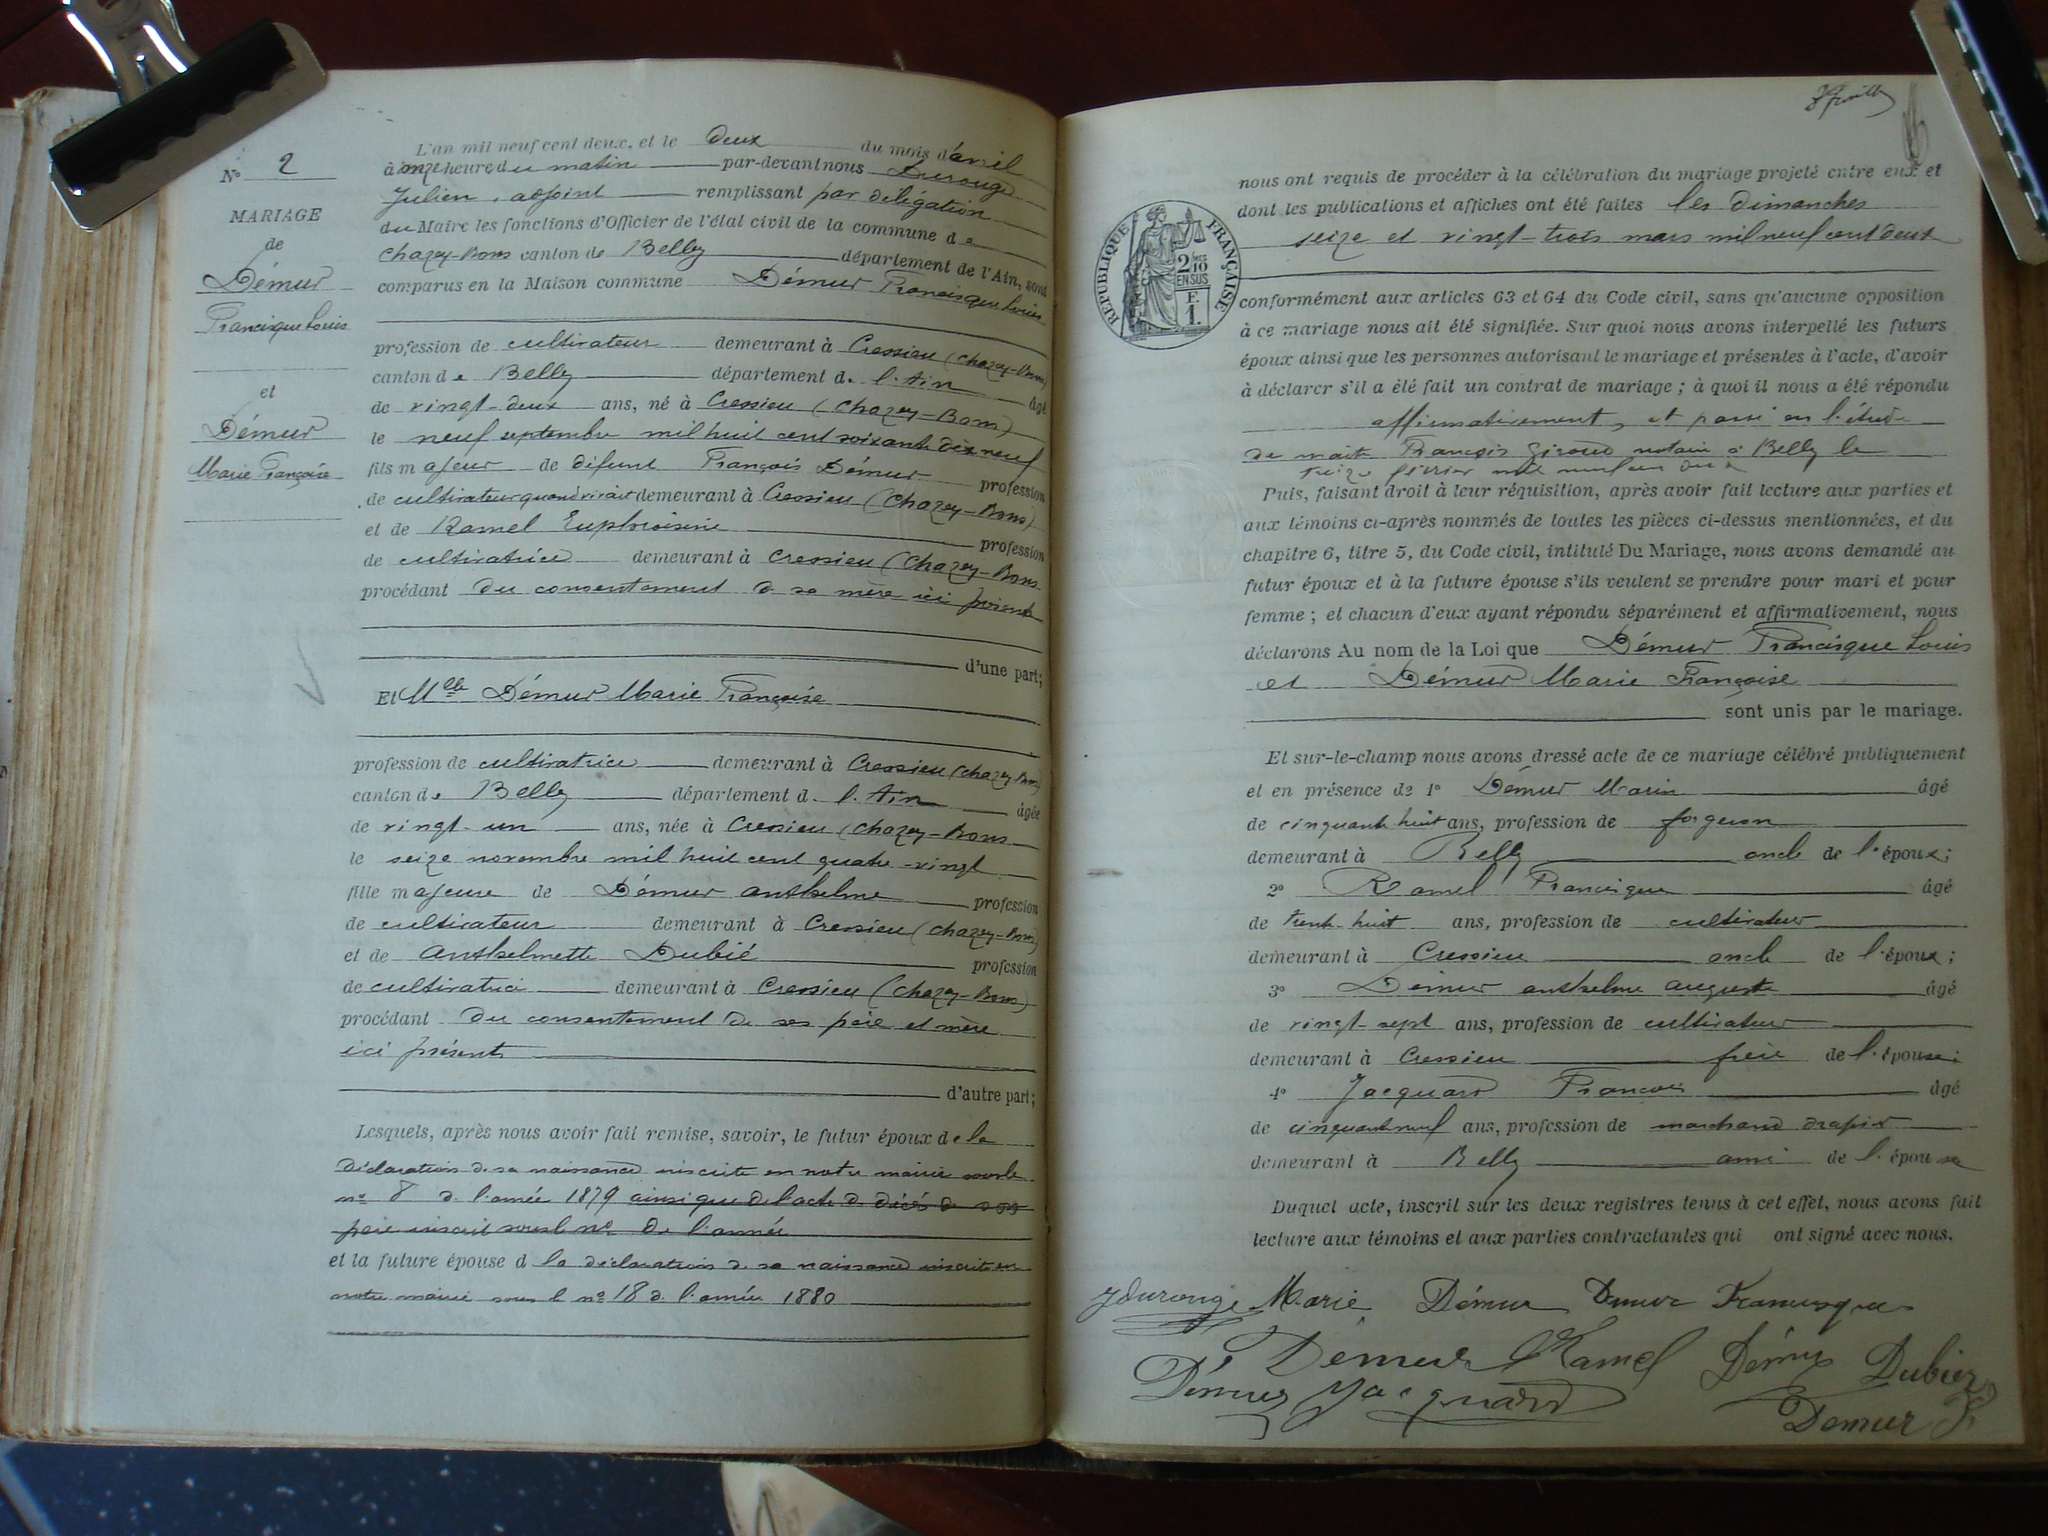 N° 2
MARIAGE
de
Démur
Francisque Louis
et
Démur
Marie Françoise
L'an mil neuf cent deux, et le deux du mois d'avril
à onze heure du matin par-devant nous Durouge
Julien, adjoint remplissant par délégation
du Maire les fonctions d'Officier de l'état civil de la commune de
Chazey-Bons canton de Belley département de l'Ain, sont
comparus en la Maison commune Démur Francisque Louis
profession de cultivateur demeurant à Cressieu (Chazey-Bons)
canton de Belley département de l'Ain âgé
de vingt-deux ans, né à Cressieu (Chazey-Bons)
le neuf septembre mil huit cent soixante dix neuf
fils majeur de défunt François Démur profession
de cultivateur quand vivait demeurant à Cressieu (Chazey-Bons)
et de Ramel Euphroisine profession
de cultivatrice demeurant à Cressieu (Chazey-Bons
procédant du consentement de sa mère ici présente
d'une part;
Et Mlle Démur Marie Françoise
profession de cultivatrice demeurant à Cressieu (Chazey-Bons)
canton de Belley département d. l'Ain âgée
de vingt-un ans, née à Cressieu (Chazey-Bons
le seize novembre mil huit cent quatre-vingt
fille majeure de Démur Anthelme profession
de cultivateur demeurant à Cressieu (Chazey-Bons)
et de Anthelmette Dubié profession
de cultivatrice demeurant à Cressieu (Chazey-Bons)
procédant du consentement de ses père et mère
ici présents
d'autre part;
Lesquels, après nous avoir fait remise, savoir, le futur époux de la
déclaration de sa naissance inscrite en notre mairie sous le
n° 8 de l'année 1879 ainsi que de l'acte de décès de son
père inscrit sous le n° de l'année
et la future épouse d la déclaration de sa naissance inscrite en
notre mairie sous le n° 18 de l'année 1880
RÉPUBLIQUE FRANÇAISE
2/10
EN SUS
F.
1.
nous ont requis de procéder à la célébration du mariage projeté entre eux et
dont les publications et affiches ont été faites les dimanches
seize et vingt-trois mars mil neuf cent deux
conformément aux articles 63 et 64 du Code civil, sans qu'aucune opposition
à ce mariage nous ait été signifiée. Sur quoi nous avons interpellé les futurs
époux ainsi que les personnes autorisant le mariage et présentes à l'acte, d'avoir
à déclarer s'il a été fait un contrat de mariage; à quoi il nous a été répondu
affirmativement, et passé en l'étude
de maitre François Giroud notaire à Belley le
treize février mil neuf cent deux
Puis, faisant droit à leur réquisition, après avoir fait lecture aux parties et
aux témoins ci-après nommés de toutes les pièces ci-dessus mentionnées, et du
chapitre 6, titre 5, du Code civil, intitulé Du Mariage, nous avons demandé au
futur époux et à la future épouse s'ils veulent se prendre pour mari et pour
femme; et chacun d'eux ayant répondu séparément et affirmativement, nous
déclarons Au nom de la Loi que Démur Francisque Louis
et Démur Marie Françoise
sont unis par le mariage.
Et sur-le-champ nous avons dressé acte de ce mariage célébré publiquement
et en présence de 1° Démur Marin âgé
de cinquante huit ans, profession de forgeron
demeurant à Belley oncle de l'époux;
2° Ramel Francisque âgé
de trente-huit ans, profession de cultivateur
demeurant à Cressieu oncle de l'époux;
3° Démur Anthelme Auguste âgé
de vingt-sept ans, profession de cultivateur
demeurant à Cressieu frère de l'épouse;
4° Jacquard François âgé
de cinquante neuf ans, profession de marchand drapier
demeurant à Belley ami de l'épouse
Duquel acte, inscrit sur les deux registres tenus à cet effet, nous avons fait
lecture aux témoins et aux parties contractantes qui ont signé avec nous.
J durouge Marie Démur Demur Francisque
Démur Ramel Démur Dubiez
Démur Jacquard Demur